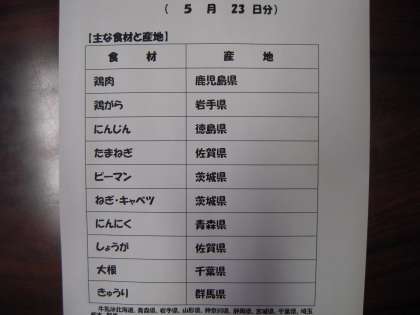 ( 5 月 23 日分)
【主な食材と産地】
食 材 産 地
鶏肉 鹿児島県
鶏がら 岩手県
にんじん 徳島県
たまねぎ 佐賀県
ピーマン 茨城県
ねぎ・キャベツ 茨城県
にんにく 青森県
しょうが 佐賀県
大根 千葉県
きゅうり 群馬県
牛乳は北海道、青森県、岩手県、山形県、神奈川県、静岡県、宮城県、千葉県、埼玉